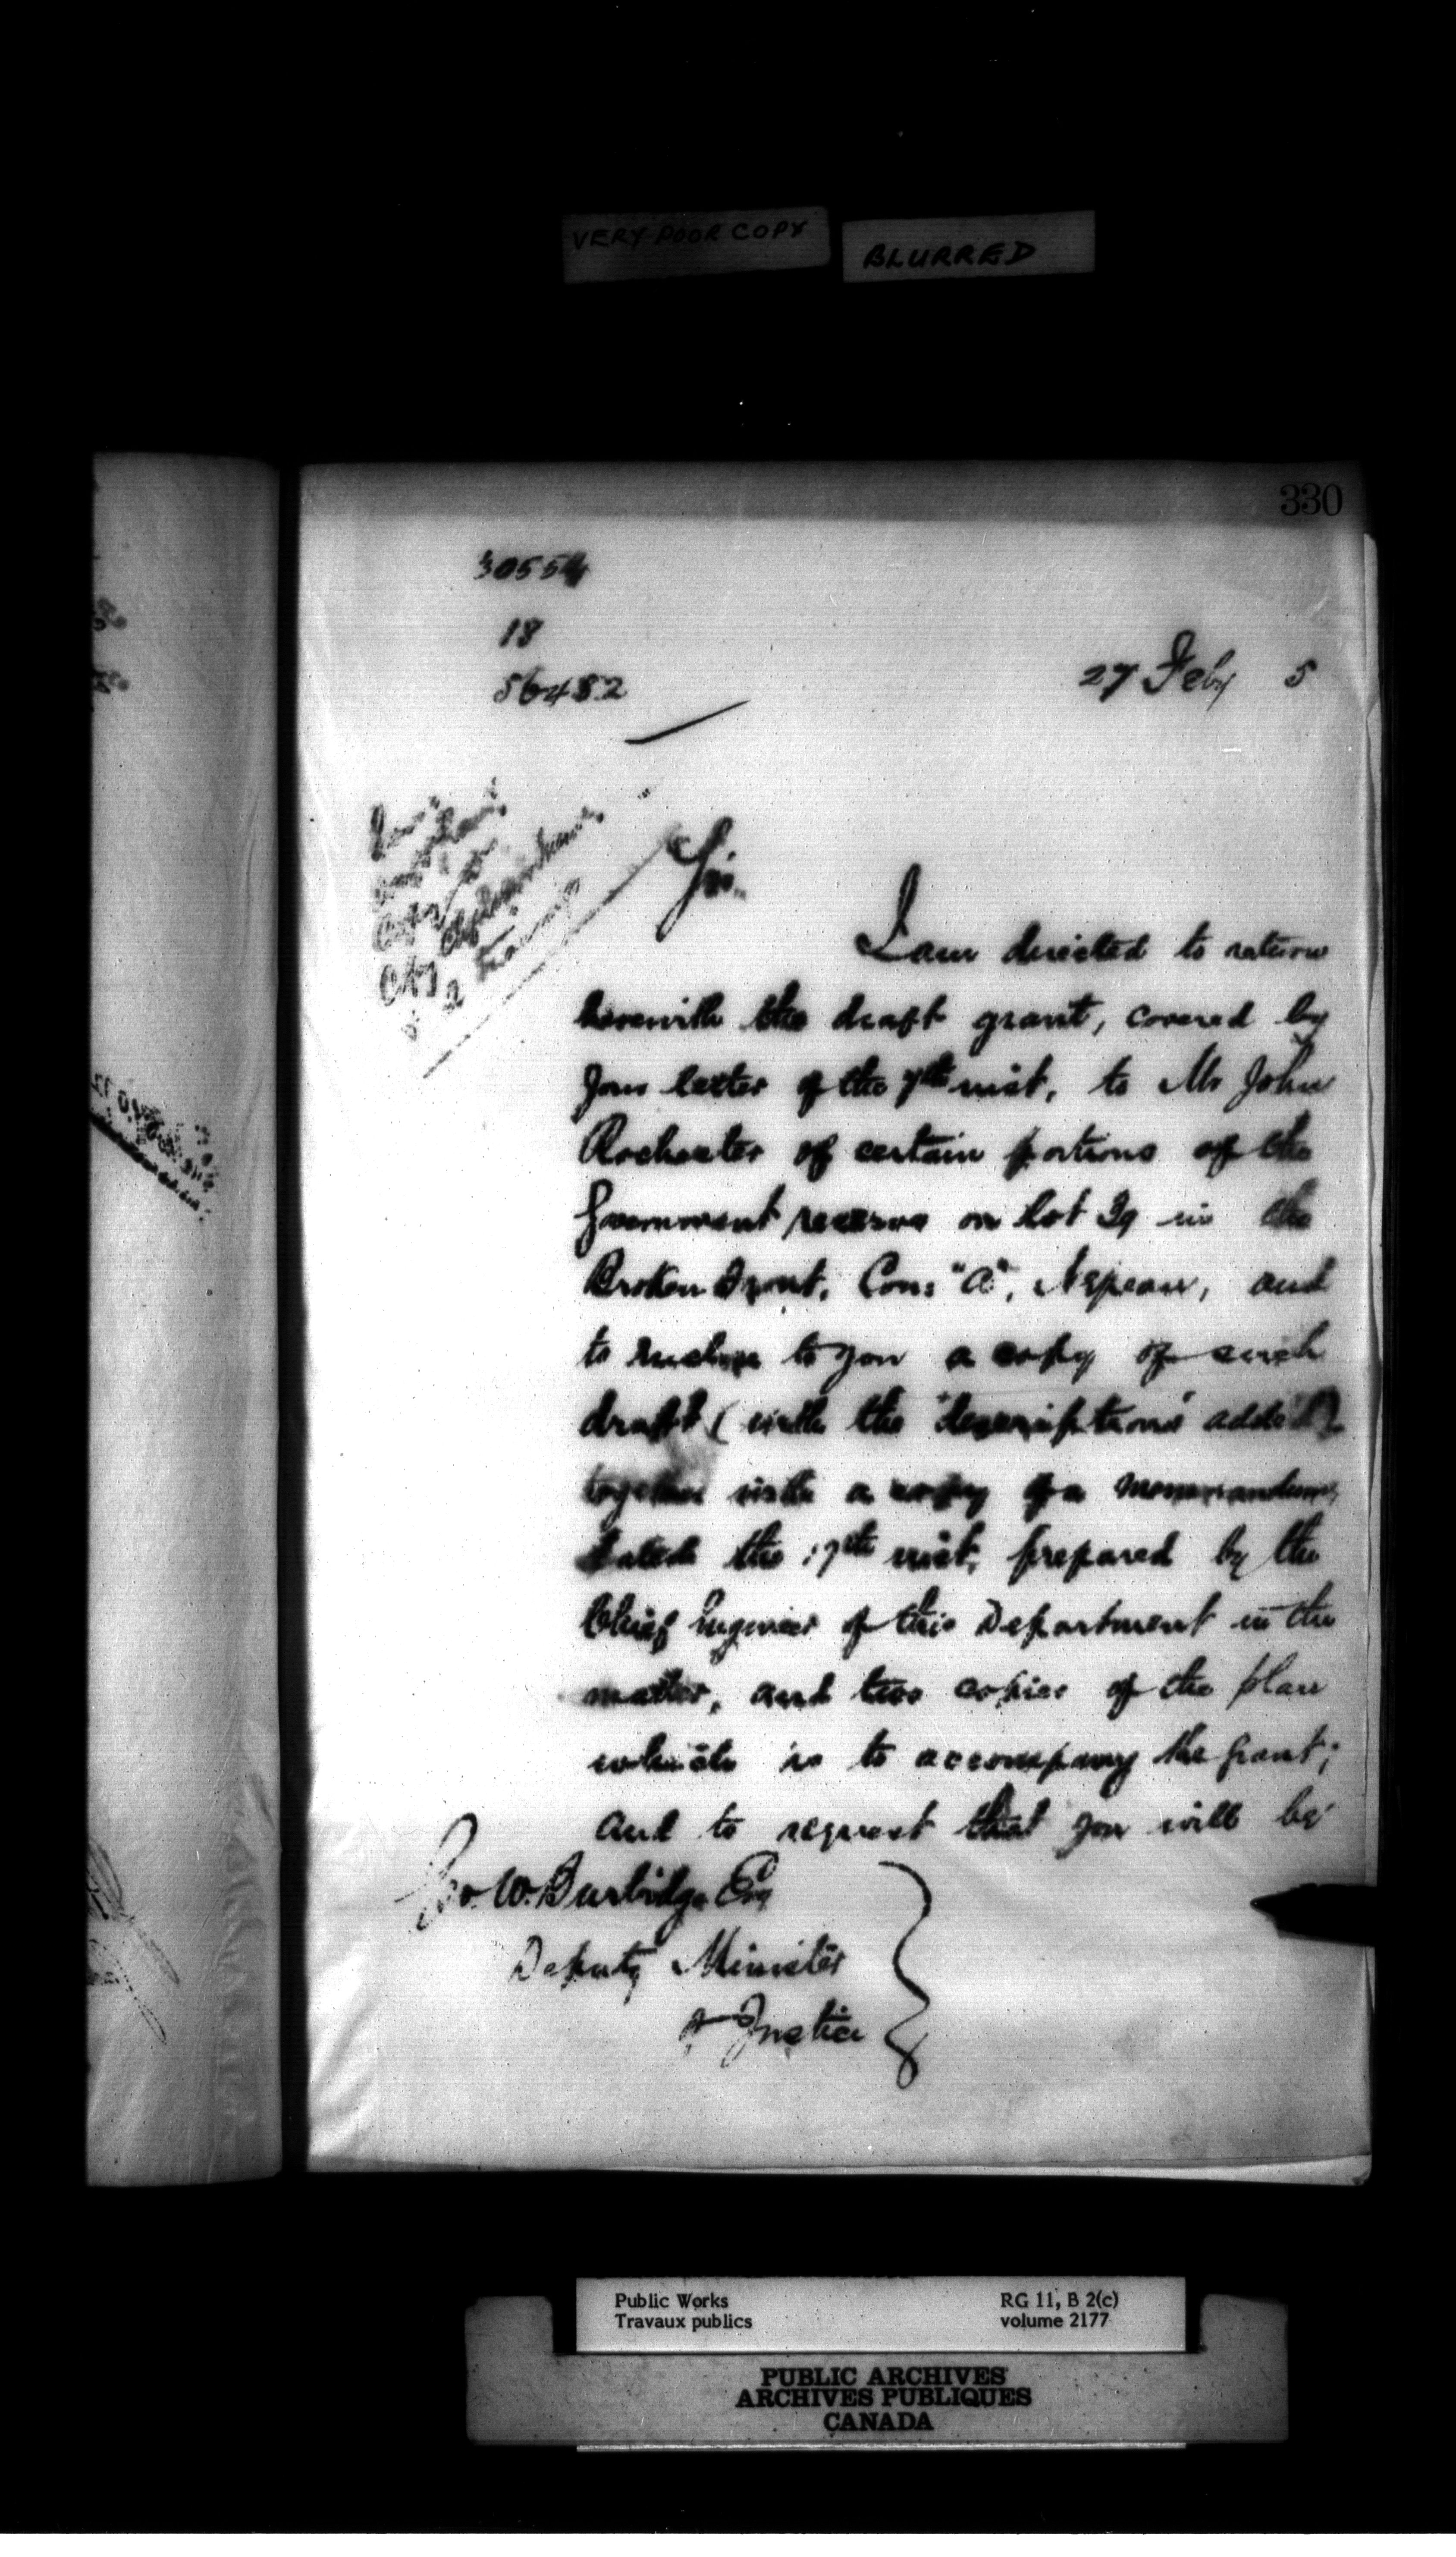 VERY POOR COPY
BLURRED
330
30554
18
56482
27 Feby 5
Sir.
I am directed to return
herewith the draft grant, covered by
your letter of the 7th inst, to Mr John
Rochester of certain portions of the
Government reserve on Lot 39 in the
Broken Front, Con: "A", Nepean, and
to enclose to you a copy of such
draft (with the "descriptions" added)
together with a copy of a memorandum,
dated the 17th inst, prepared by the
Chief Engineer of this Department in the
matter, and two copies of the plan
which is to accompany the grant;
and to request that you will be
Geo. W. Burbidge Esq
Deputy Minister
of Justice
Public Works
Travaux publics
RG 11, B 2(c)
volume 2177
PUBLIC ARCHIVES
ARCHIVES PUBLIQUES
CANADA